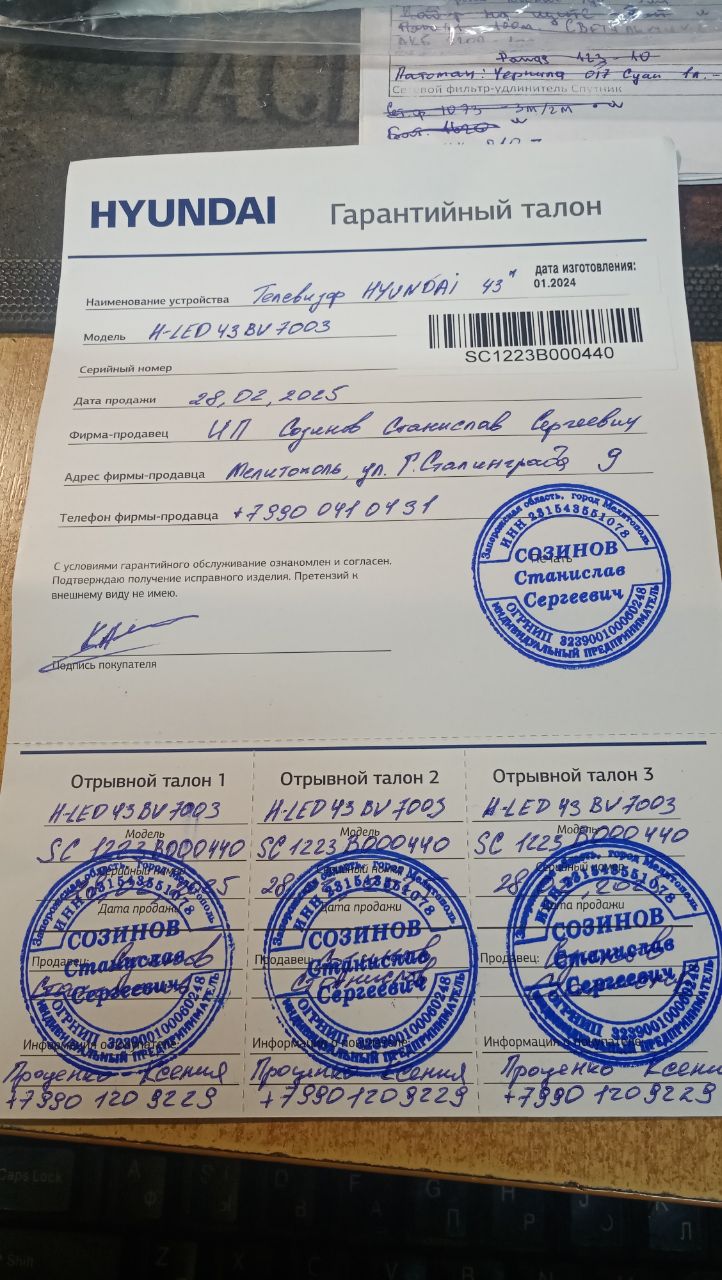 123-10
Патоман: Чернила 017 Суан 1л.
Сетевой фильтр-удлинитель Спутник
1073 - 3м/2м
HYUNDAI Гарантийный талон
дата изготовления:
01.2024
Наименование устройства Телевизор HYUNDAI 43"
Модель H-LED 43 BV 7003
SC1223B000440
Серийный номер
Дата продажи 28,02,2025
Фирма-продавец ИП Созинов Станислав Сергеевич
Адрес фирмы-продавца Мелитополь, ул. Г.Сталинграда 9
Телефон фирмы-продавца +7990 041 0431
С условиями гарантийного обслуживание ознакомлен и согласен.
Подтверждаю получение исправного изделия. Претензий к
внешнему виду не имею.
Печать
Запорожская область, город Мелитополь
ИНН 231543551078
СОЗИНОВ
Станислав
Сергеевич
ОГРНИП 323900100060248
ИНДИВИДУАЛЬНЫЙ ПРЕДПРИНИМАТЕЛЬ
Подпись покупателя
Отрывной талон 1
H-LED 43 BV 7003
Модель
SC 1223 B000440
Серийный номер
Дата продажи
Запорожская область, город Мелитополь
ИНН 231543551078
СОЗИНОВ
Продавец:
Станислав
Сергеевич
ОГРНИП 323900100060248
ИНДИВИДУАЛЬНЫЙ ПРЕДПРИНИМАТЕЛЬ
Информация о покупателе:
Проценко Ксения
+7990 120 9229
Отрывной талон 2
H-LED 43 BV 7003
Модель
SC 1223 B000440
Серийный номер
Дата продажи
Запорожская область, город Мелитополь
ИНН 231543551078
СОЗИНОВ
Продавец:
Станислав
Сергеевич
ОГРНИП 323900100060248
ИНДИВИДУАЛЬНЫЙ ПРЕДПРИНИМАТЕЛЬ
Информация о покупателе:
Проценко Ксения
+7990 120 9229
Отрывной талон 3
H-LED 43 BV 7003
Модель
SC 1223 B000440
Серийный номер
Дата продажи
Запорожская область, город Мелитополь
ИНН 231543551078
СОЗИНОВ
Продавец:
Станислав
Сергеевич
ОГРНИП 323900100060248
ИНДИВИДУАЛЬНЫЙ ПРЕДПРИНИМАТЕЛЬ
Информация о покупателе:
Проценко Ксения
+7990 120 9229
Caps Lock
Shift